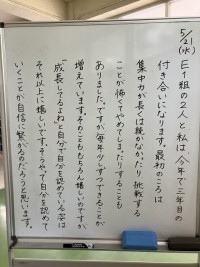 5/21
(水)
E1組の2人と私は、今年で三年目の
付き合いになります。最初のころは
集中力が長くは続かなかったり、挑戦する
ことが怖くてやめてしまったりすることも
ありました。ですが、毎年少しずつできることが
増えています。そのことももちろん嬉しいのですが
「成長してるよね」と自分で自分を認めている姿は
それ以上に嬉しいです。そうやって自分を認めて
いくことが自信に繋がるのだろうと思います。